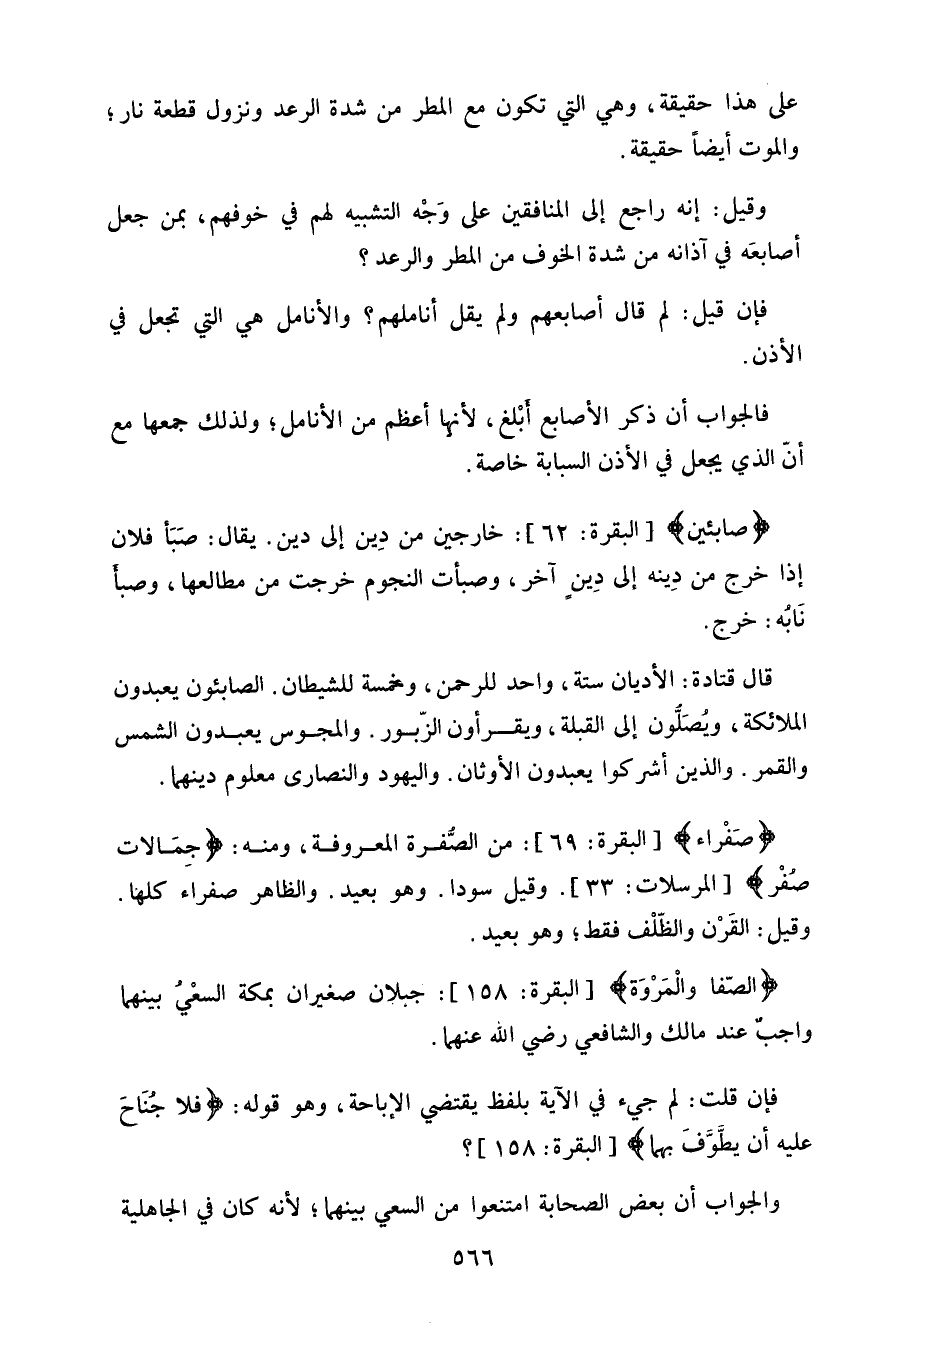 على هذا حقيقة، وهي التي تكون مع المطر من شدة الرعد ونزول قطعة نار؛
والموت أيضاً حقيقة.
وقيل: إنه راجع إلى المنافقين على وَجْه التشبيه لهم في خوفهم، بمن جعل
أصابعَه في آذانه من شدة الخوف من المطر والرعد ؟
فإن قيل: لم قال أصابعهم ولم يقل أناملهم؟ والأنامل هي التي تجعل في
الأذن.
فالجواب أن ذكر الأصابع أَبْلغ، لأنها أعظم من الأنامل؛ ولذلك جمعها مع
أنّ الذي يجعل في الأذن السبابة خاصة.
﴿صابئين﴾ [البقرة: ٦٢]: خارجين من دِين إلى دين. يقال: صَبَأ فلان
إذا خرج من دِينه إلى دِينٍ آخر، وصبأت النجوم خرجت من مطالعها، وصبأَ
نَابُه: خرج.
قال قتادة: الأديان ستة، واحد للرحمن، وخمسة للشيطان. الصابئون يعبدون
الملائكة، ويُصَلُّون إلى القبلة، ويقرأون الزّبور. والمجوس يعبدون الشمس
والقمر. والذين أشركوا يعبدون الأوثان. واليهود والنصارى معلوم دينهما.
﴿صَفْراء﴾ [البقرة: ٦٩]: من الصُّفرة المعروفة، ومنه: ﴿جِمَالات
صُفْر﴾ [المرسلات: ٣٣]. وقيل سودا. وهو بعيد. والظاهر صفراء كلها.
وقيل: القَرْن والظّلْف فقط؛ وهو بعيد.
﴿الصّفا والْمَرْوَة﴾ [البقرة: ١٥٨]: جبلان صغيران بمكة السعْيُ بينهما
واجبٌ عند مالك والشافعي رضي الله عنهما.
فإن قلت: لم جيء في الآية بلفظ يقتضي الإباحة، وهو قوله: ﴿فلا جُنَاحَ
عليه أن يطَّوَّفَ بهما﴾ [البقرة: ١٥٨]؟
والجواب أن بعض الصحابة امتنعوا من السعي بينهما؛ لأنه كان في الجاهلية
٥٦٦